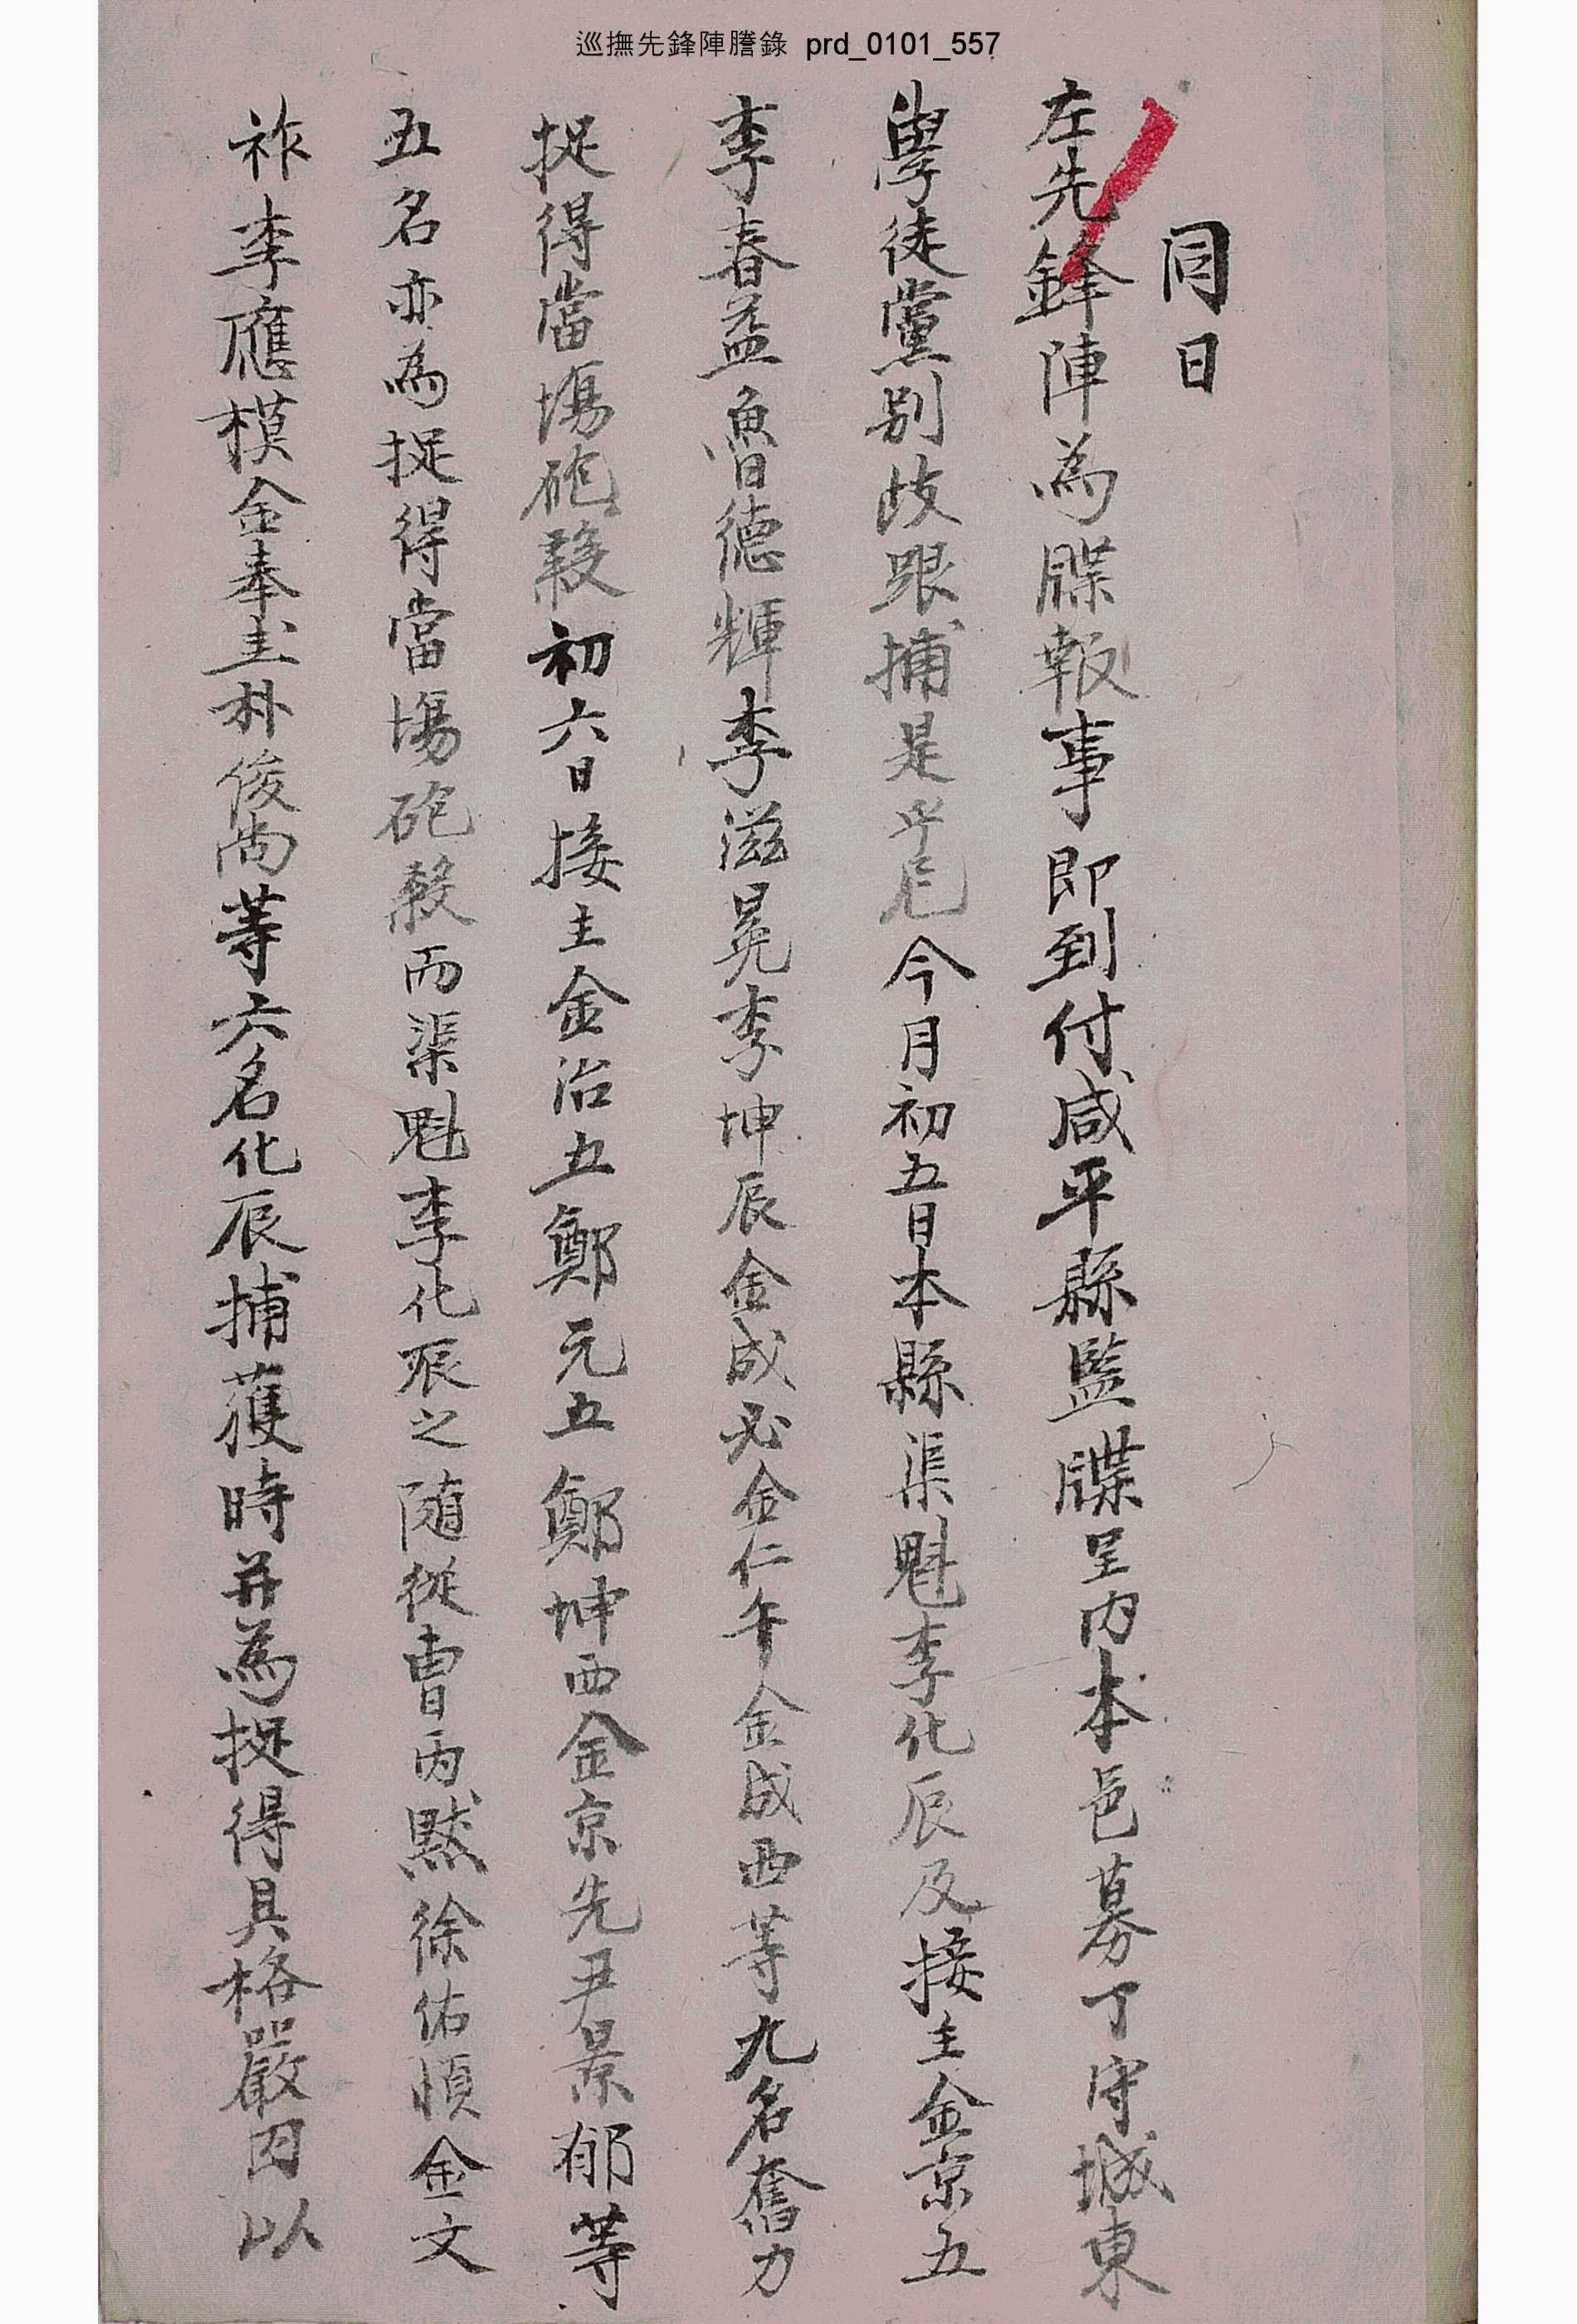 巡撫先鋒陣謄錄 prd_0101_557
同日
左先鋒陣為牒報事即到付咸平縣監牒呈內本邑募丁守城東
學徒黨別歧跟捕是乎尼今月初五日本縣渠魁李化辰及接主金京五
李春益魯德輝李滋晃李坤辰金成必金仁午金成西等九名奮力
捉得當場砲殺初六日接主金治五鄭元五鄭坤西金京先尹景郁等
五名亦為捉得當場砲殺而渠魁李化辰之随從曺丙默徐佑順金文
祚李應模金奉圭朴俊尚等六名化辰捕獲時并為捉得具格嚴囚以